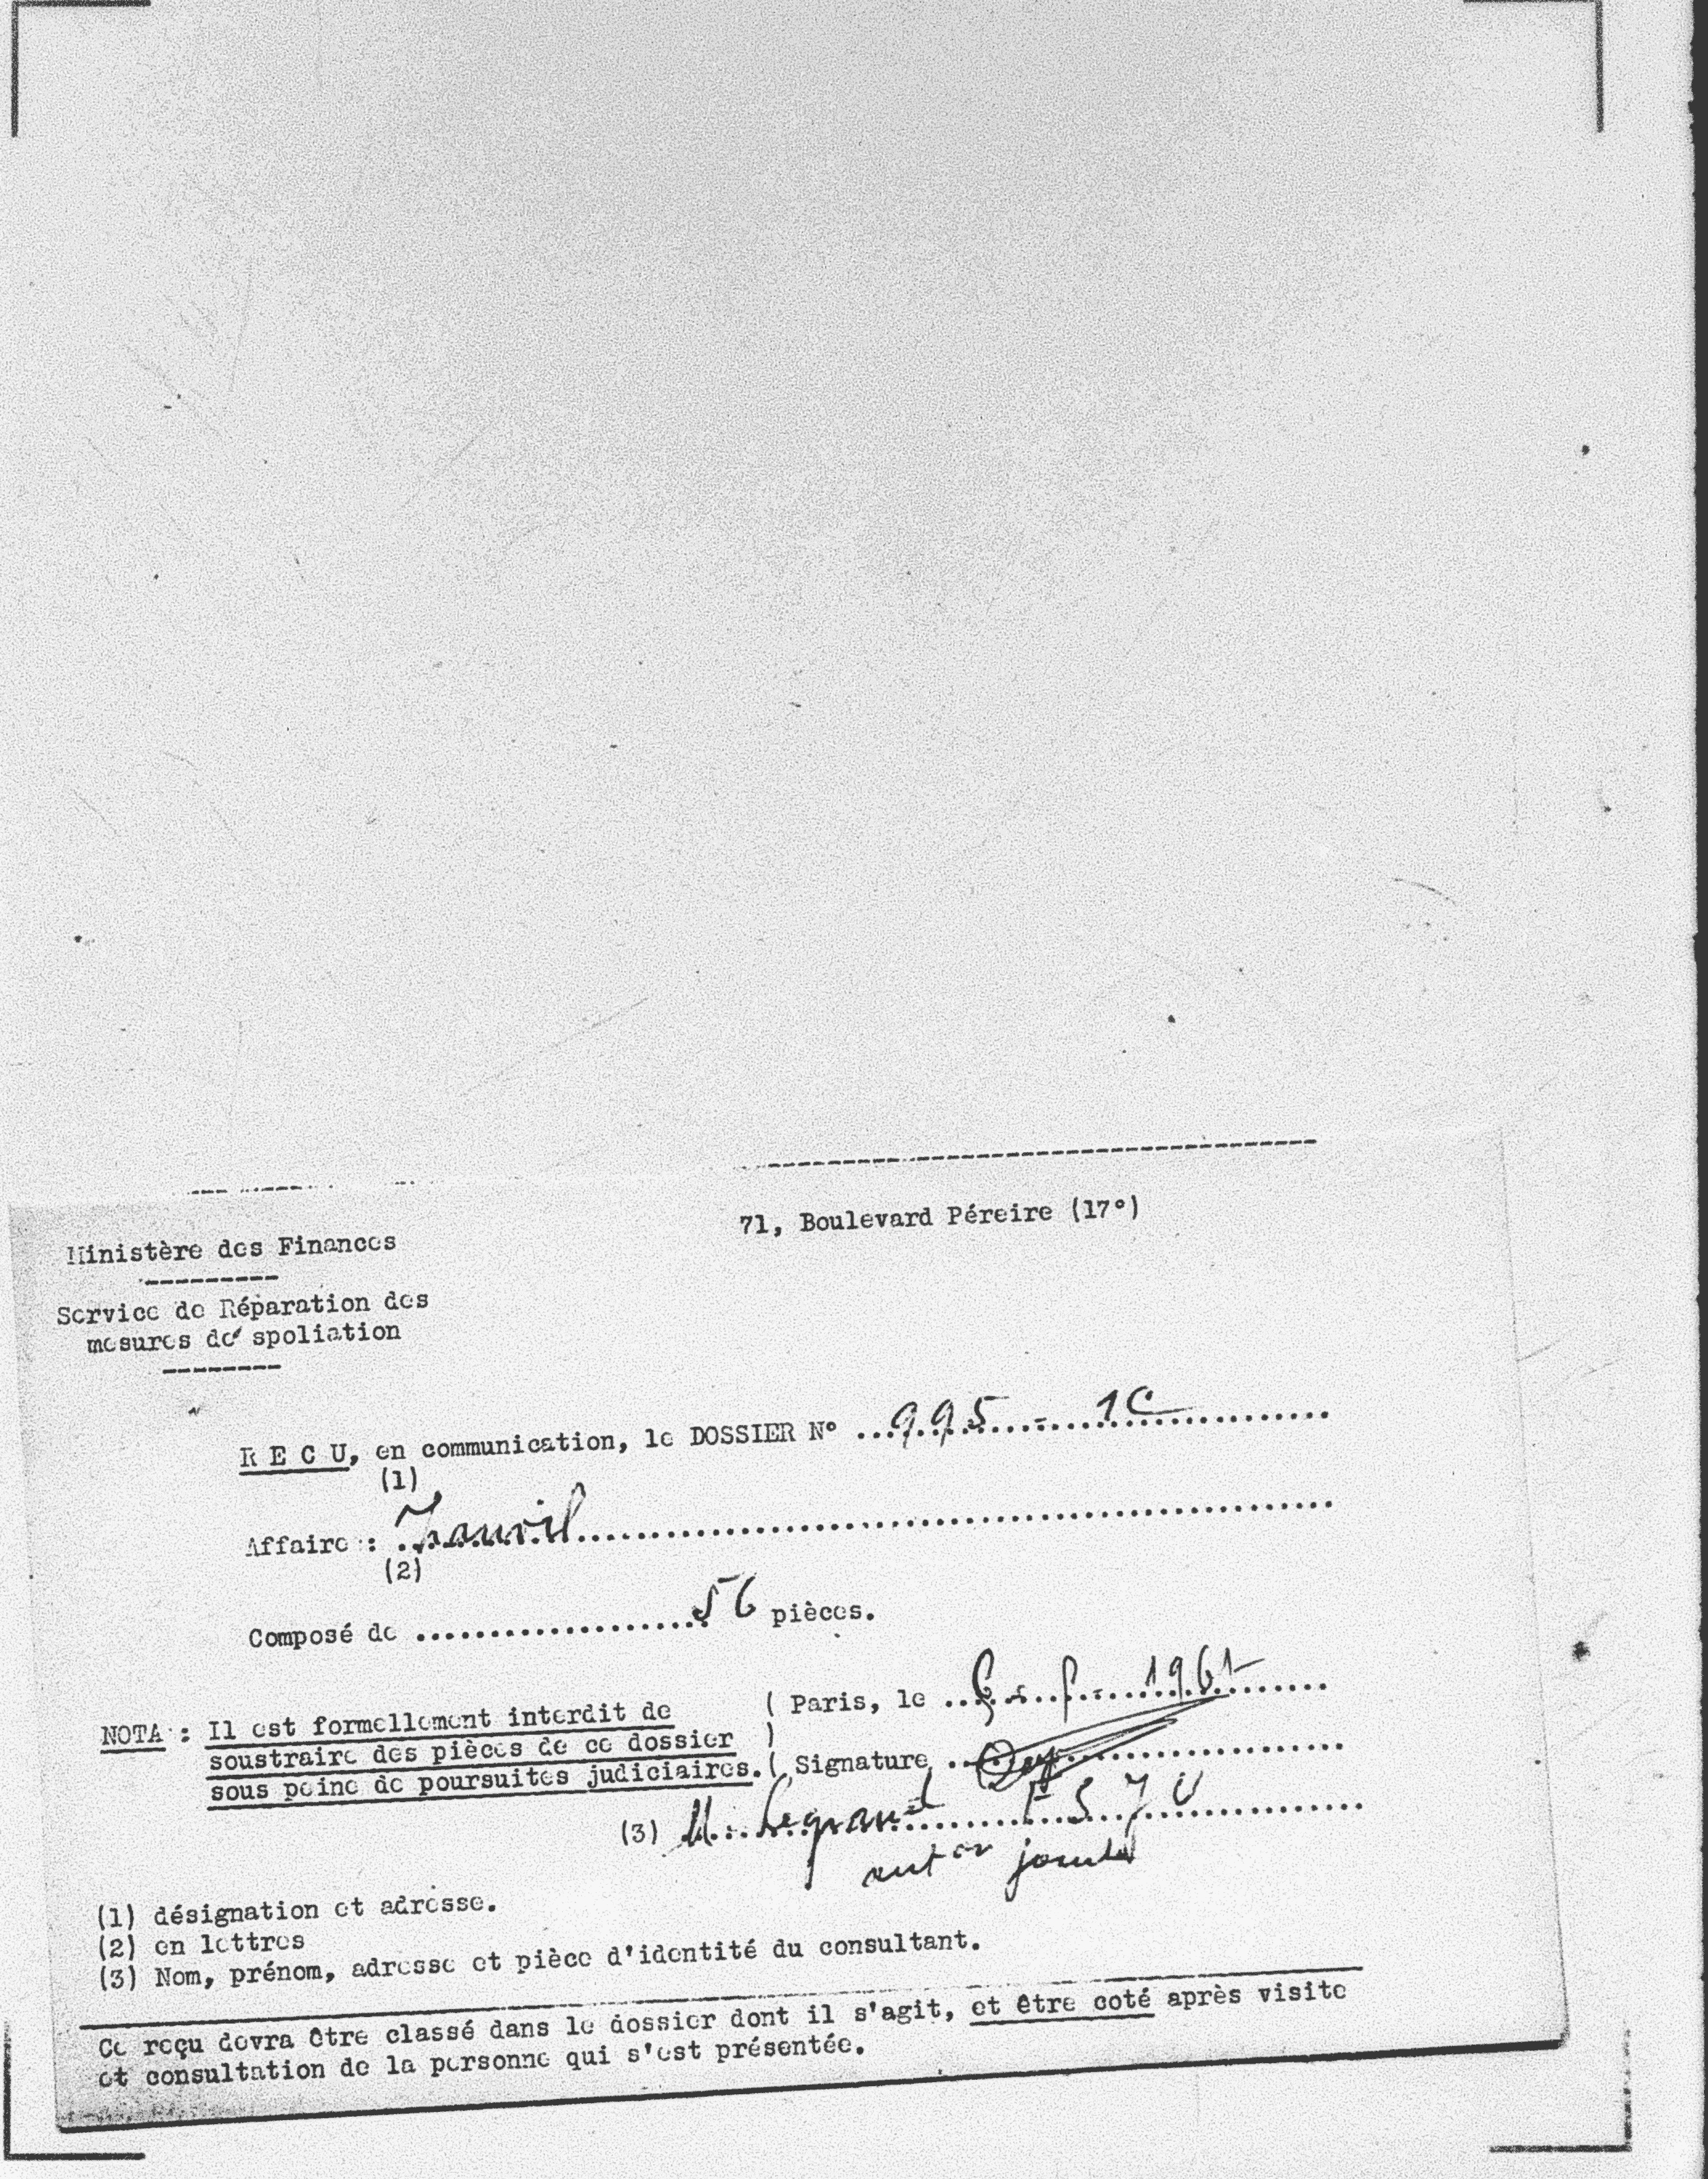 71, Boulevard Péreire (17°)
Ministère des Finances
Service de Réparation des
mesures de spoliation
R E C U, en communication, le DOSSIER N° 995 - 1C
(1)
Affaire :
(2)
Composé de 56 pièces.
NOTA : Il est formellement interdit de
soustraire des pièces de ce dossier
sous peine de poursuites judiciaires.
( Paris, le 1961
)
( Signature
(3) M. Legrand
(1) désignation et adresse.
(2) en lettres
(3) Nom, prénom, adresse et pièce d'identité du consultant.
Ce reçu devra être classé dans le dossier dont il s'agit, et être coté après visite
et consultation de la personne qui s'est présentée.